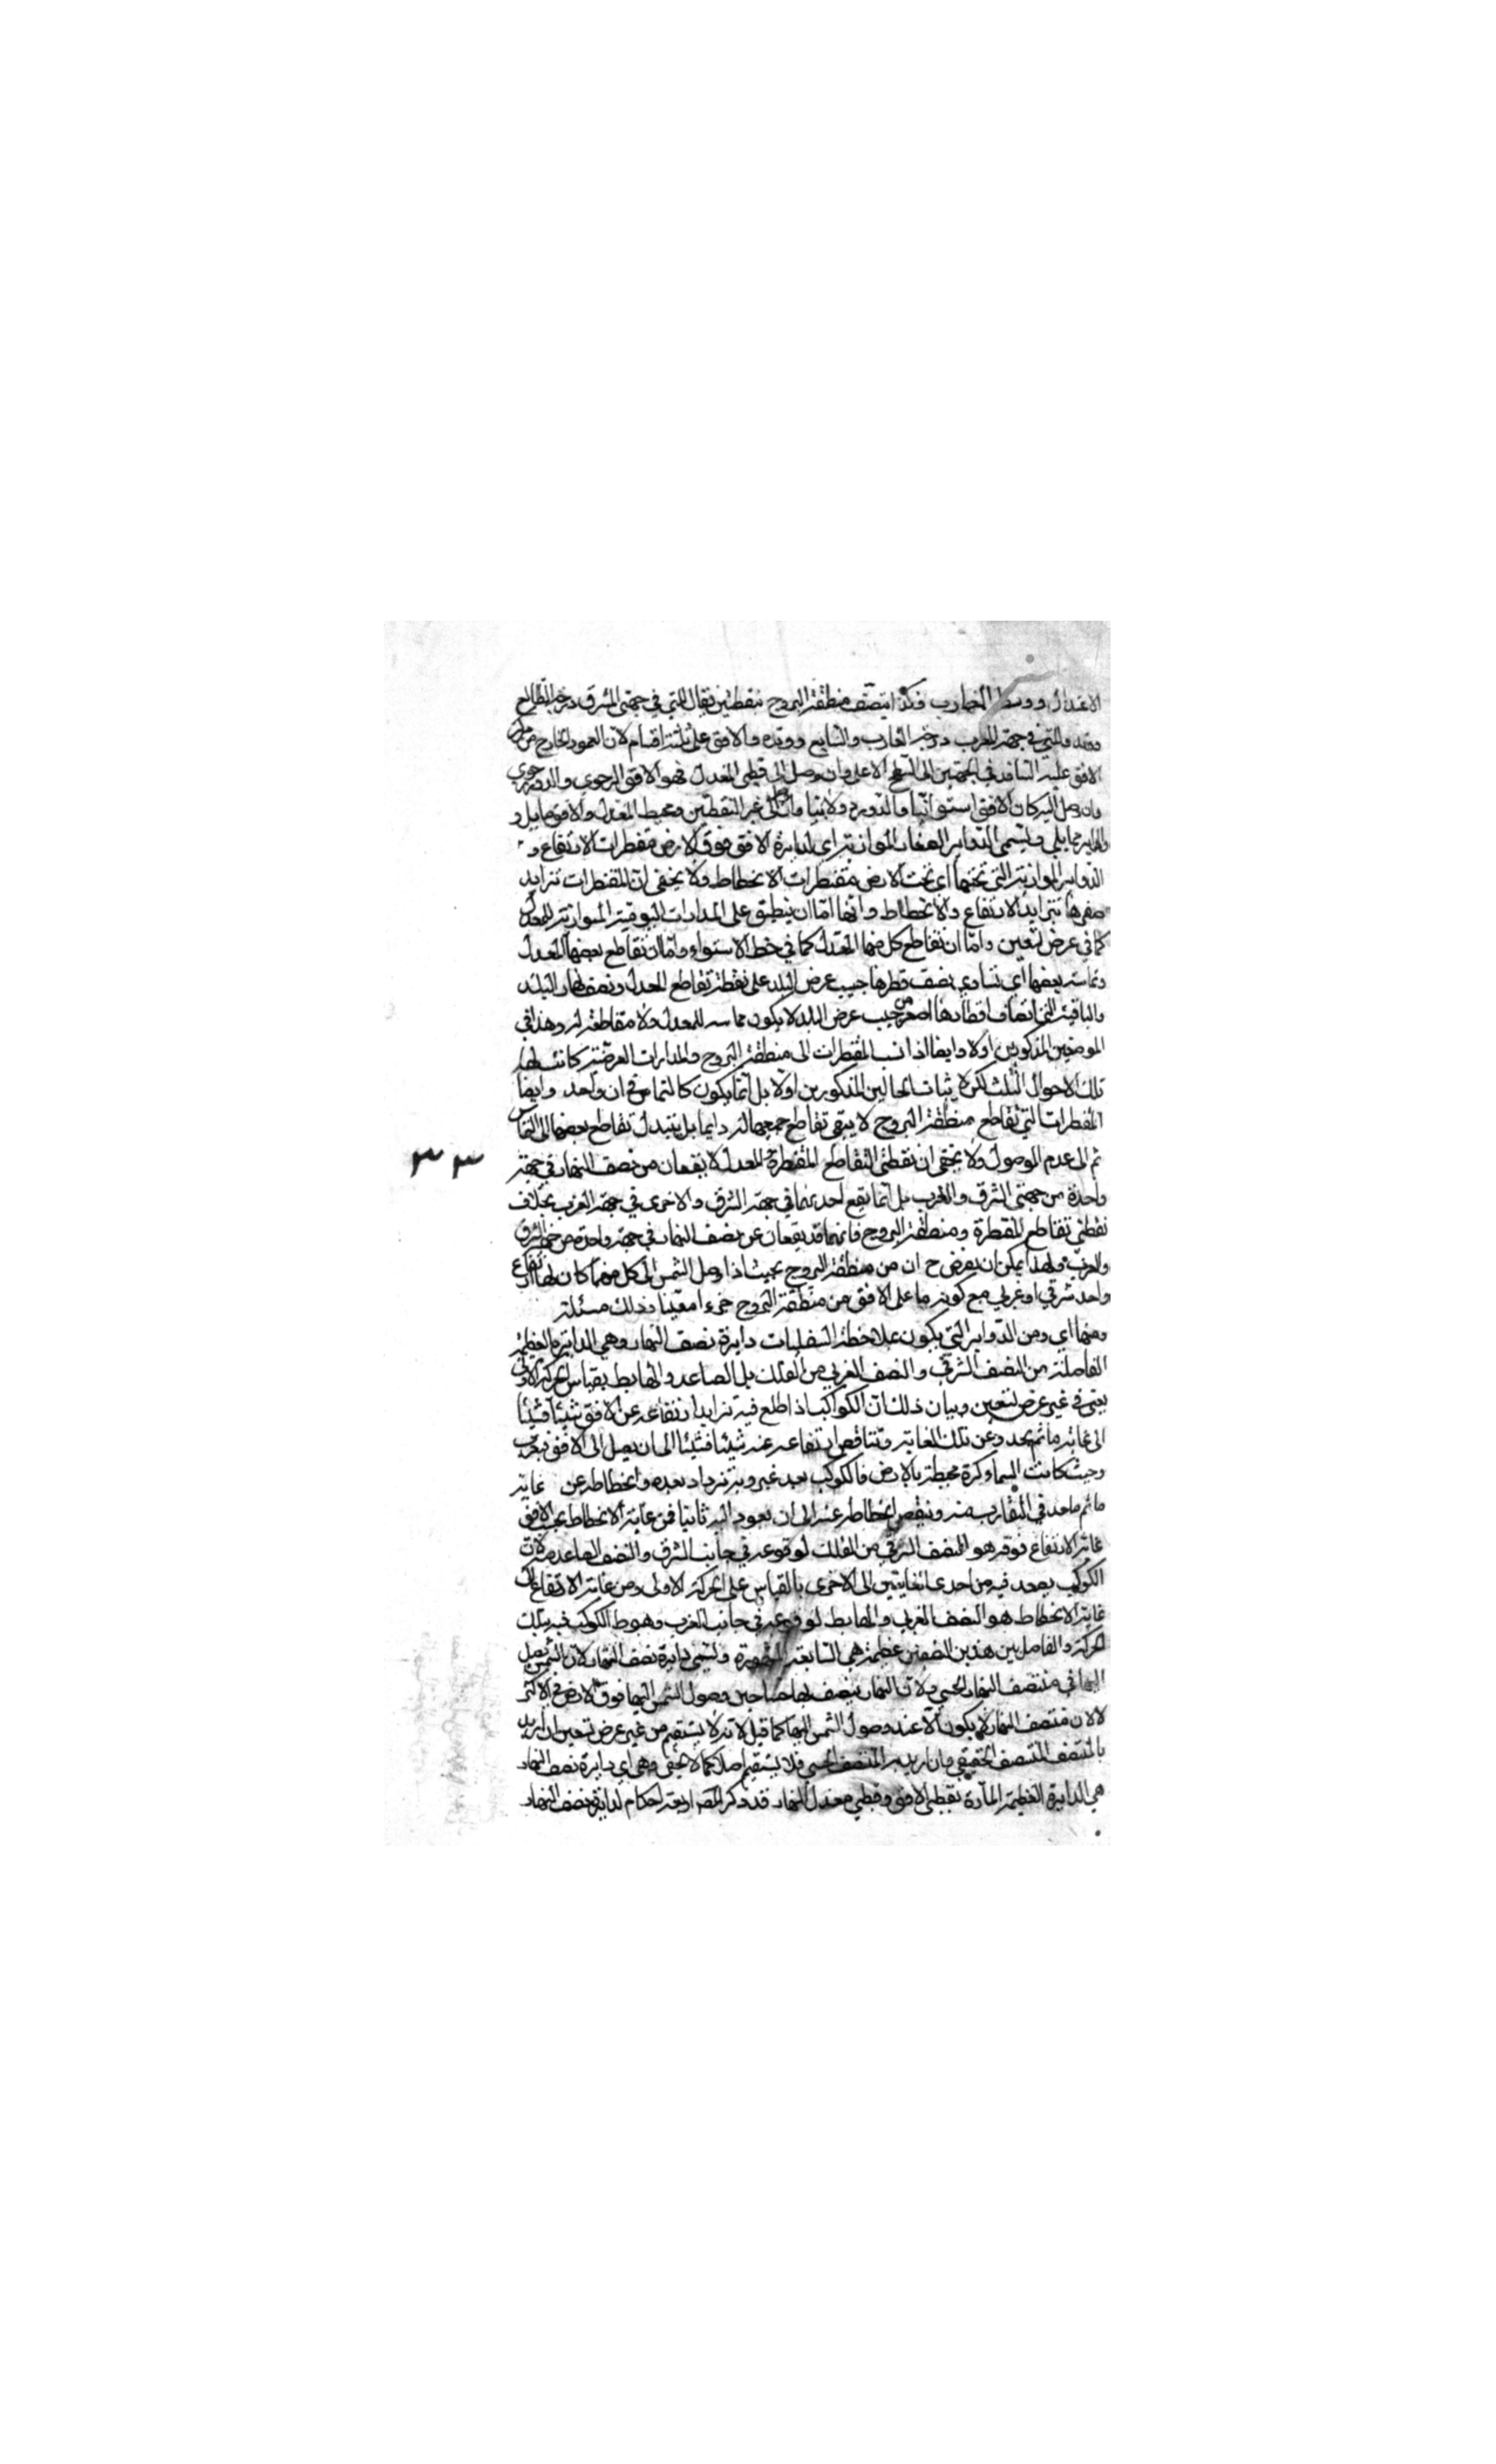 الاعتدال ووسط المغارب وكذا ينتصف منطقة البروج بنقطتين يقال للتي في جهة المشرق درجة الطالع
ووتده وللتي في جهة المغرب درجة الغارب والسابع ووتده والافق على ثلثة اقسام لان العمود الخارج من مركز
الافق عليه النافذ في الجهتين الى السطح الاعلى وان وصل الى قطبي المعدل فهو الافق الرحوي والدور رحوي
وان وصل اليه كان الافق استوائيا والدور دولابيا وان وصل الى غير النقطتين ومحيط المعدل والافق مايل و
الدور حمايلي وتسمى الدواير الصغار الموازية اي لدايرة الافق فوق الارض مقنطرات الارتفاع و
الدواير الموازية التي تحتها اي تحت الارض مقنطرات الانحطاط ولا يخفى ان المقنطرات تتزايد
صغرها بتزايد الارتفاع والانحطاط وانها اما ان ينطبق على المدارات اليومية الموازية للمعدل
كما في عرض تسعين واما ان تقاطع كل منها المعدل كما في خط الاستواء واما ان تقاطع بعضها المعدل
وتماسه بعضها اي تساوي نصف قطرها جيب عرض البلد على نقطة تقاطع المعدل ونصف نهار البلد
والباقية التي انصاف اقطارها اصغر من جيب عرض البلد لا يكون مماسه للمعدل ولا مقاطعة له وهذا في
الموضعين المذكورين اولا وايضا اذا نسب المقنطرات الى منطقة البروج والمدارات العرضية كانت لها
تلك الاحوال الثلث لكن لا يثبات الحالين المذكورين اولا بل انما يكون كالتماس في ان واحد وايضا
المقنطرات التي تقاطع منطقة البروج لا يبقى تقاطع جميعها له دايما بل يتبدل تقاطع بعضها الى التماس
ثم الى عدم الوصول ولا يخفى ان نقطتي التقاطع المقنطرة والمعدل لا يقعان من نصف النهار في جهة
واحدة من جهتي الشرق والغرب بل انما يقع احديهما في جهة الشرق والاخرى في جهة الغرب بخلاف
نقطتي تقاطع المقنطرة ومنطقة البروج فانهما قد يقعان عن نصف النهار في جهة واحدة من جهتي الشرق
والغرب ولهذا يمكن ان يفرض ح ان من منطقة البروج بحيث اذا وصل الشمس الى كل منهما كان لها ارتفاع
واحد شرقي او غربي مع كونه ما على الافق من منطقة البروج جزءا معينا وذلك مسئلة
ومنها اي ومن الدواير التي يكون بملاحظة السفليات دايرة نصف النهار وهي الدايرة العظيمة
الفاصلة من النصف الشرقي والنصف الغربي من الفلك بل الصاعد والهابط بقياس الحركة الاولى
يعني في غير عرض تسعين وبيان ذلك ان الكواكب اذا طلع فيه تزايد ارتفاعه عن الافق شيئا فشيئا
الى غاية ما ثم يحدد عن تلك الغاية وتتناقص ارتفاعه عنه شيئا فشيئا الى ان يصل الى الافق فيغرب
وحيث كانت السماء كرة محيطة بالارض فالكوكب بعد غروبه تزداد بعده وانحطاطه عن غاية
ما ثم ياخذ في التقارب منه وينقص انحطاطه عنه الى ان يعود اليه ثانيا فمن غاية الانحطاط تحت الافق
غاية الارتفاع فوقه هو النصف الشرقي من الفلك لوقوعه في جانب الشرق والنصف الصاعد منه لان
الكوكب يصعد فيه من احدى الغايتين الى الاخرى بالقياس على الحركة الاولى ومن غاية الارتفاع الى
غاية الانحطاط هو النصف الغربي والهابط لوقوعه في جانب الغرب وهبوط الكوكب فيه بتلك
الحركة والفاصل بين هذين النصفين عظيمة هي السابعة المشهورة وتسمى دايرة نصف النهار لان الشمس يصل
اليها في منتصف النهار الحسي ولان النهار ينتصف بها حين وصول الشمس اليها فوق الارض في الاكثر
لا لان منتصف النهار لا يكون الا عند وصول الشمس اليها كما قيل لانه لا يستقيم من غير عرض تسعين ان اريد
بالمنتصف المنتصف الحقيقي وان اريد به المنتصف الحسي فلا يستقيم اصلا كما لا يخفى وهي اي دايرة نصف النهار
هي الدايرة العظيمة المارة بقطبي الافق وقطبي معدل النهار قد ذكر المصه اربعة احكام لدايرة نصف النهار
٣٣